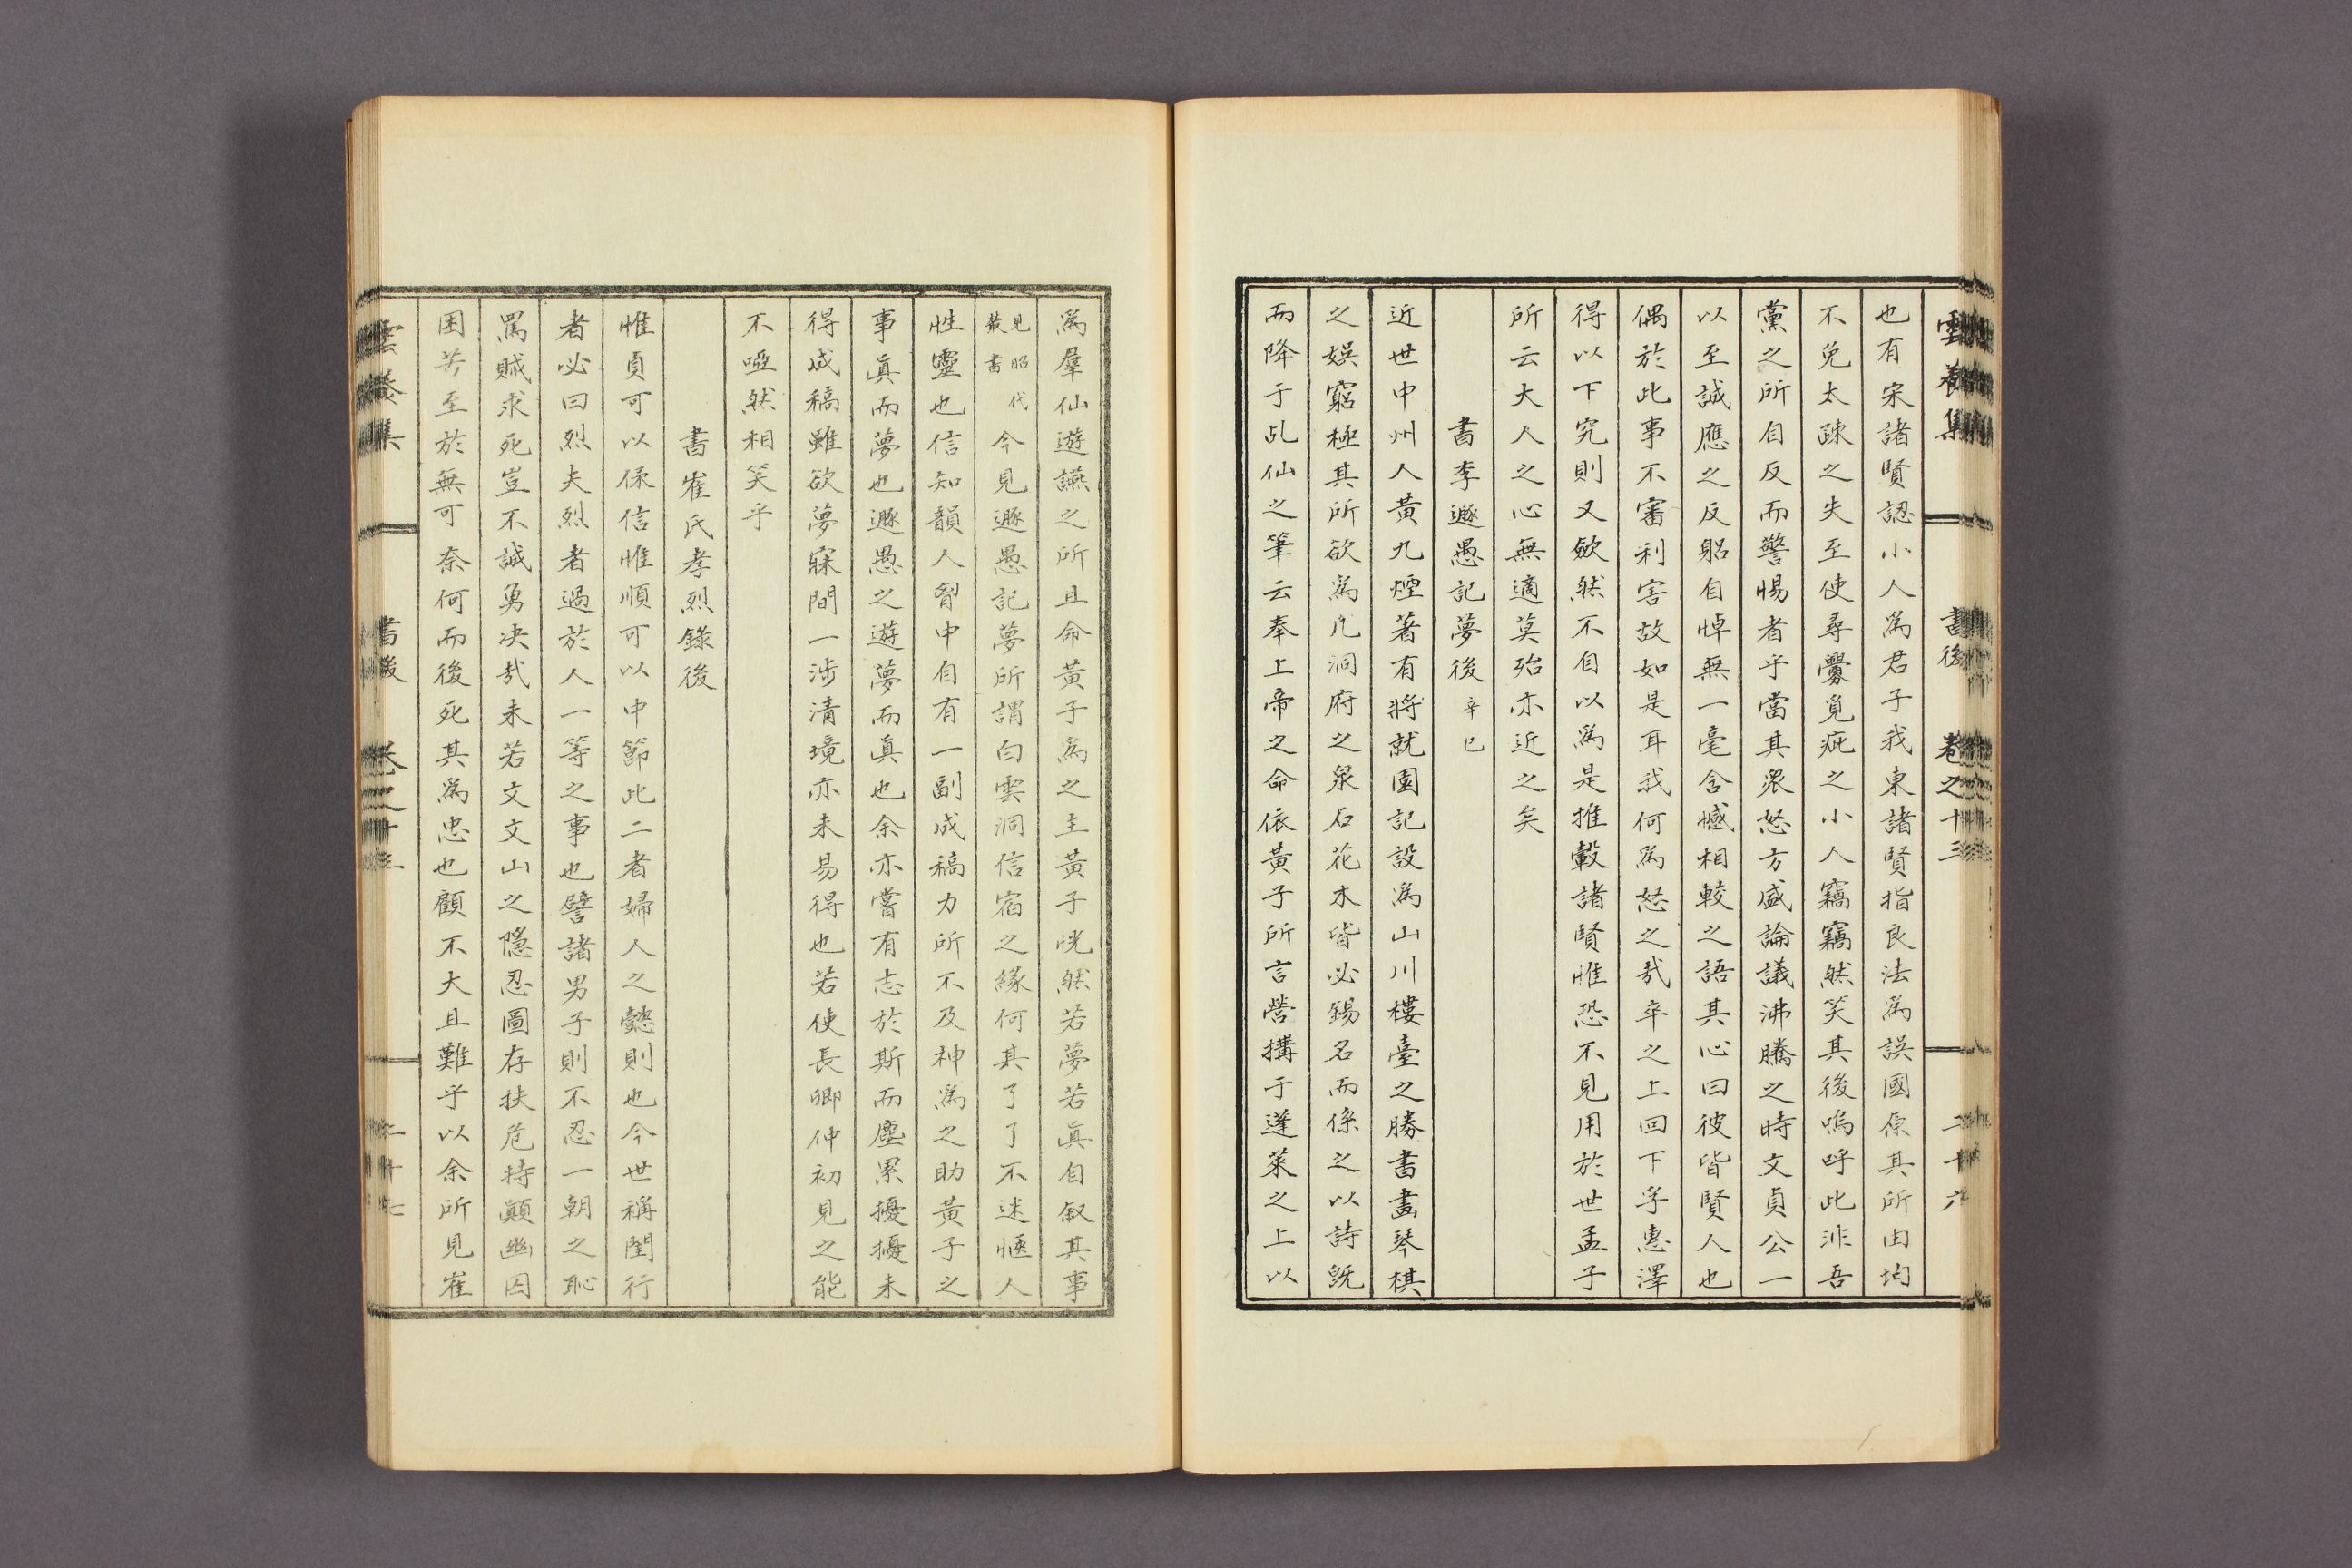 雲養集 書後 卷之十三 二十六
也有宋諸賢認小人爲君子我東諸賢指良法爲誤國原其所由均
不免太疎之失至使尋釁覓疵之小人竊竊然笑其後嗚呼此非吾
黨之所自反而警惕者乎當其衆怒方盛論議沸騰之時文貞公一
以至誠應之反躬自悼無一毫含憾相較之語其心曰彼皆賢人也
偶於此事不審利害故如是耳我何爲怒之哉卒之上回下孚惠澤
得以下究則又歛然不自以爲是推轂諸賢惟恐不見用於世孟子
所云大人之心無適莫殆亦近之矣
書李遯愚記夢後 辛巳
近世中州人黃九煙著有將就園記設爲山川樓臺之勝書畫琴棋
之娛窮極其所欲爲凡洞府之泉石花木皆必錫名而係之以詩旣
而降于乩仙之筆云奉上帝之命依黃子所言營搆于蓬萊之上以
爲羣仙遊讌之所且命黃子爲之主黃子恍然若夢若眞自叙其事
見昭代叢書今見遯愚記夢所謂白雲洞信宿之緣何其了了不迷愜人
性靈也信知韻人胷中自有一副成稿力所不及神爲之助黃子之
事眞而夢也遯愚之遊夢而眞也余亦嘗有志於斯而塵累擾擾未
得成稿雖欲夢寐間一涉清境亦未易得也若使長卿仲初見之能
不啞然相笑乎
書崔氏孝烈錄後
惟貞可以保信惟順可以中節此二者婦人之懿則也今世稱閨行
者必曰烈夫烈者過於人一等之事也譬諸男子則不忍一朝之恥
罵賊求死豈不誠勇决哉未若文文山之隱忍圖存扶危持顚幽囚
困苦至於無可奈何而後死其爲忠也顧不大且難乎以余所見崔
雲養集 書後 卷之十三 二十七